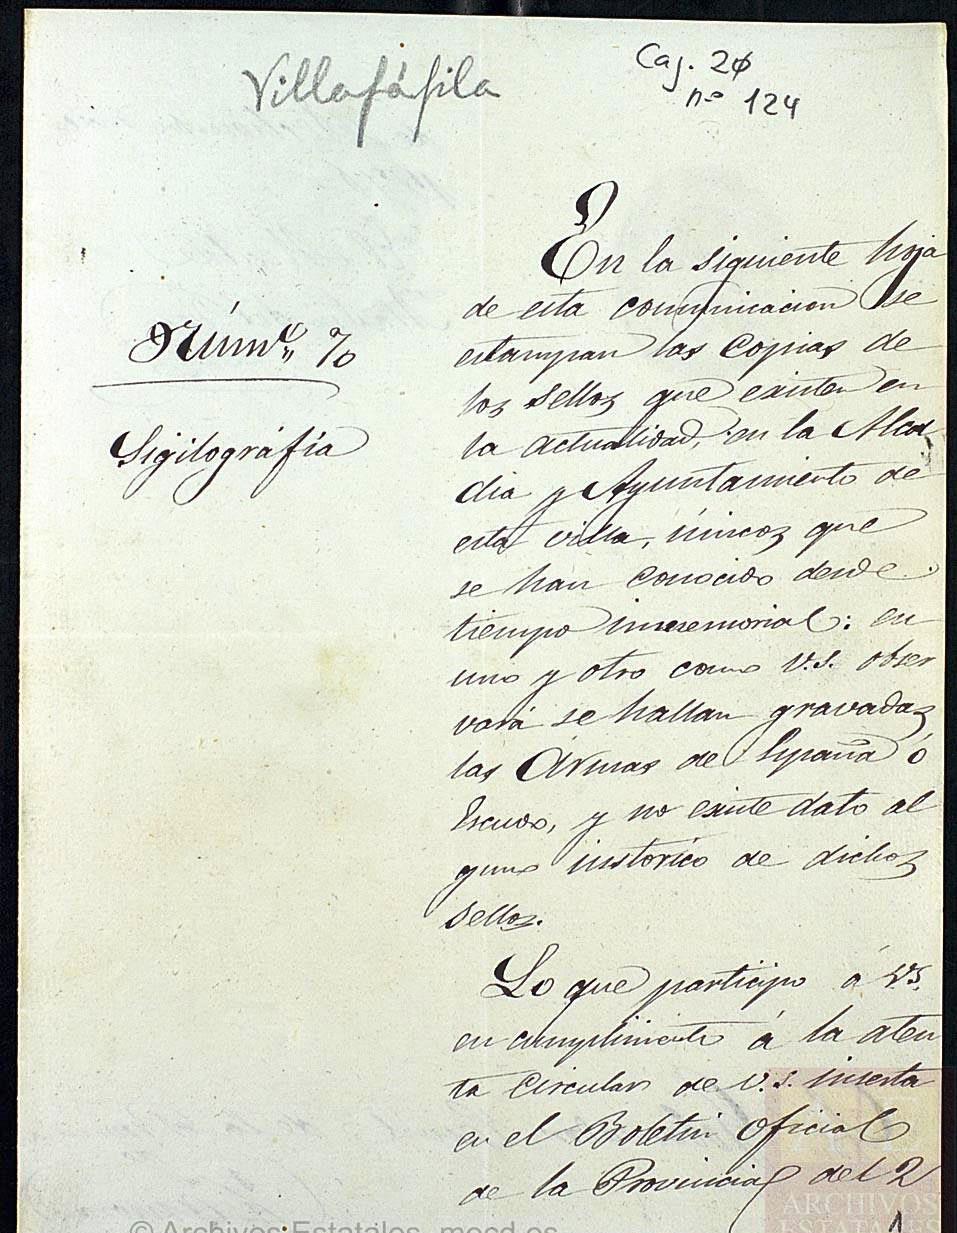 Villafáfila
Caj. 20
nº 124
Núm.º 70
Sigilográfía
En la siguiente hoja
de esta comunicacion se
estampan las copias de
los sellos que existen en
la actualidad, en la Alcal
dia y Ayuntamiento de
esta villa, únicos que
se han conocido desde
tiempo inmemorial: en
uno y otro como V.S. obser
vará se hallan gravadas
las Armas de España ó
Escudo, y no existe dato al
guno istorico de dichos
sellos.
Lo que participo á V.S.
en cumplimiento á la aten
ta circular de V.S. inserta
en el Boletin Oficial
de la Provincia del 2
1
ARCHIVOS
ESTATALES
© Archivos Estatales, mecd.es